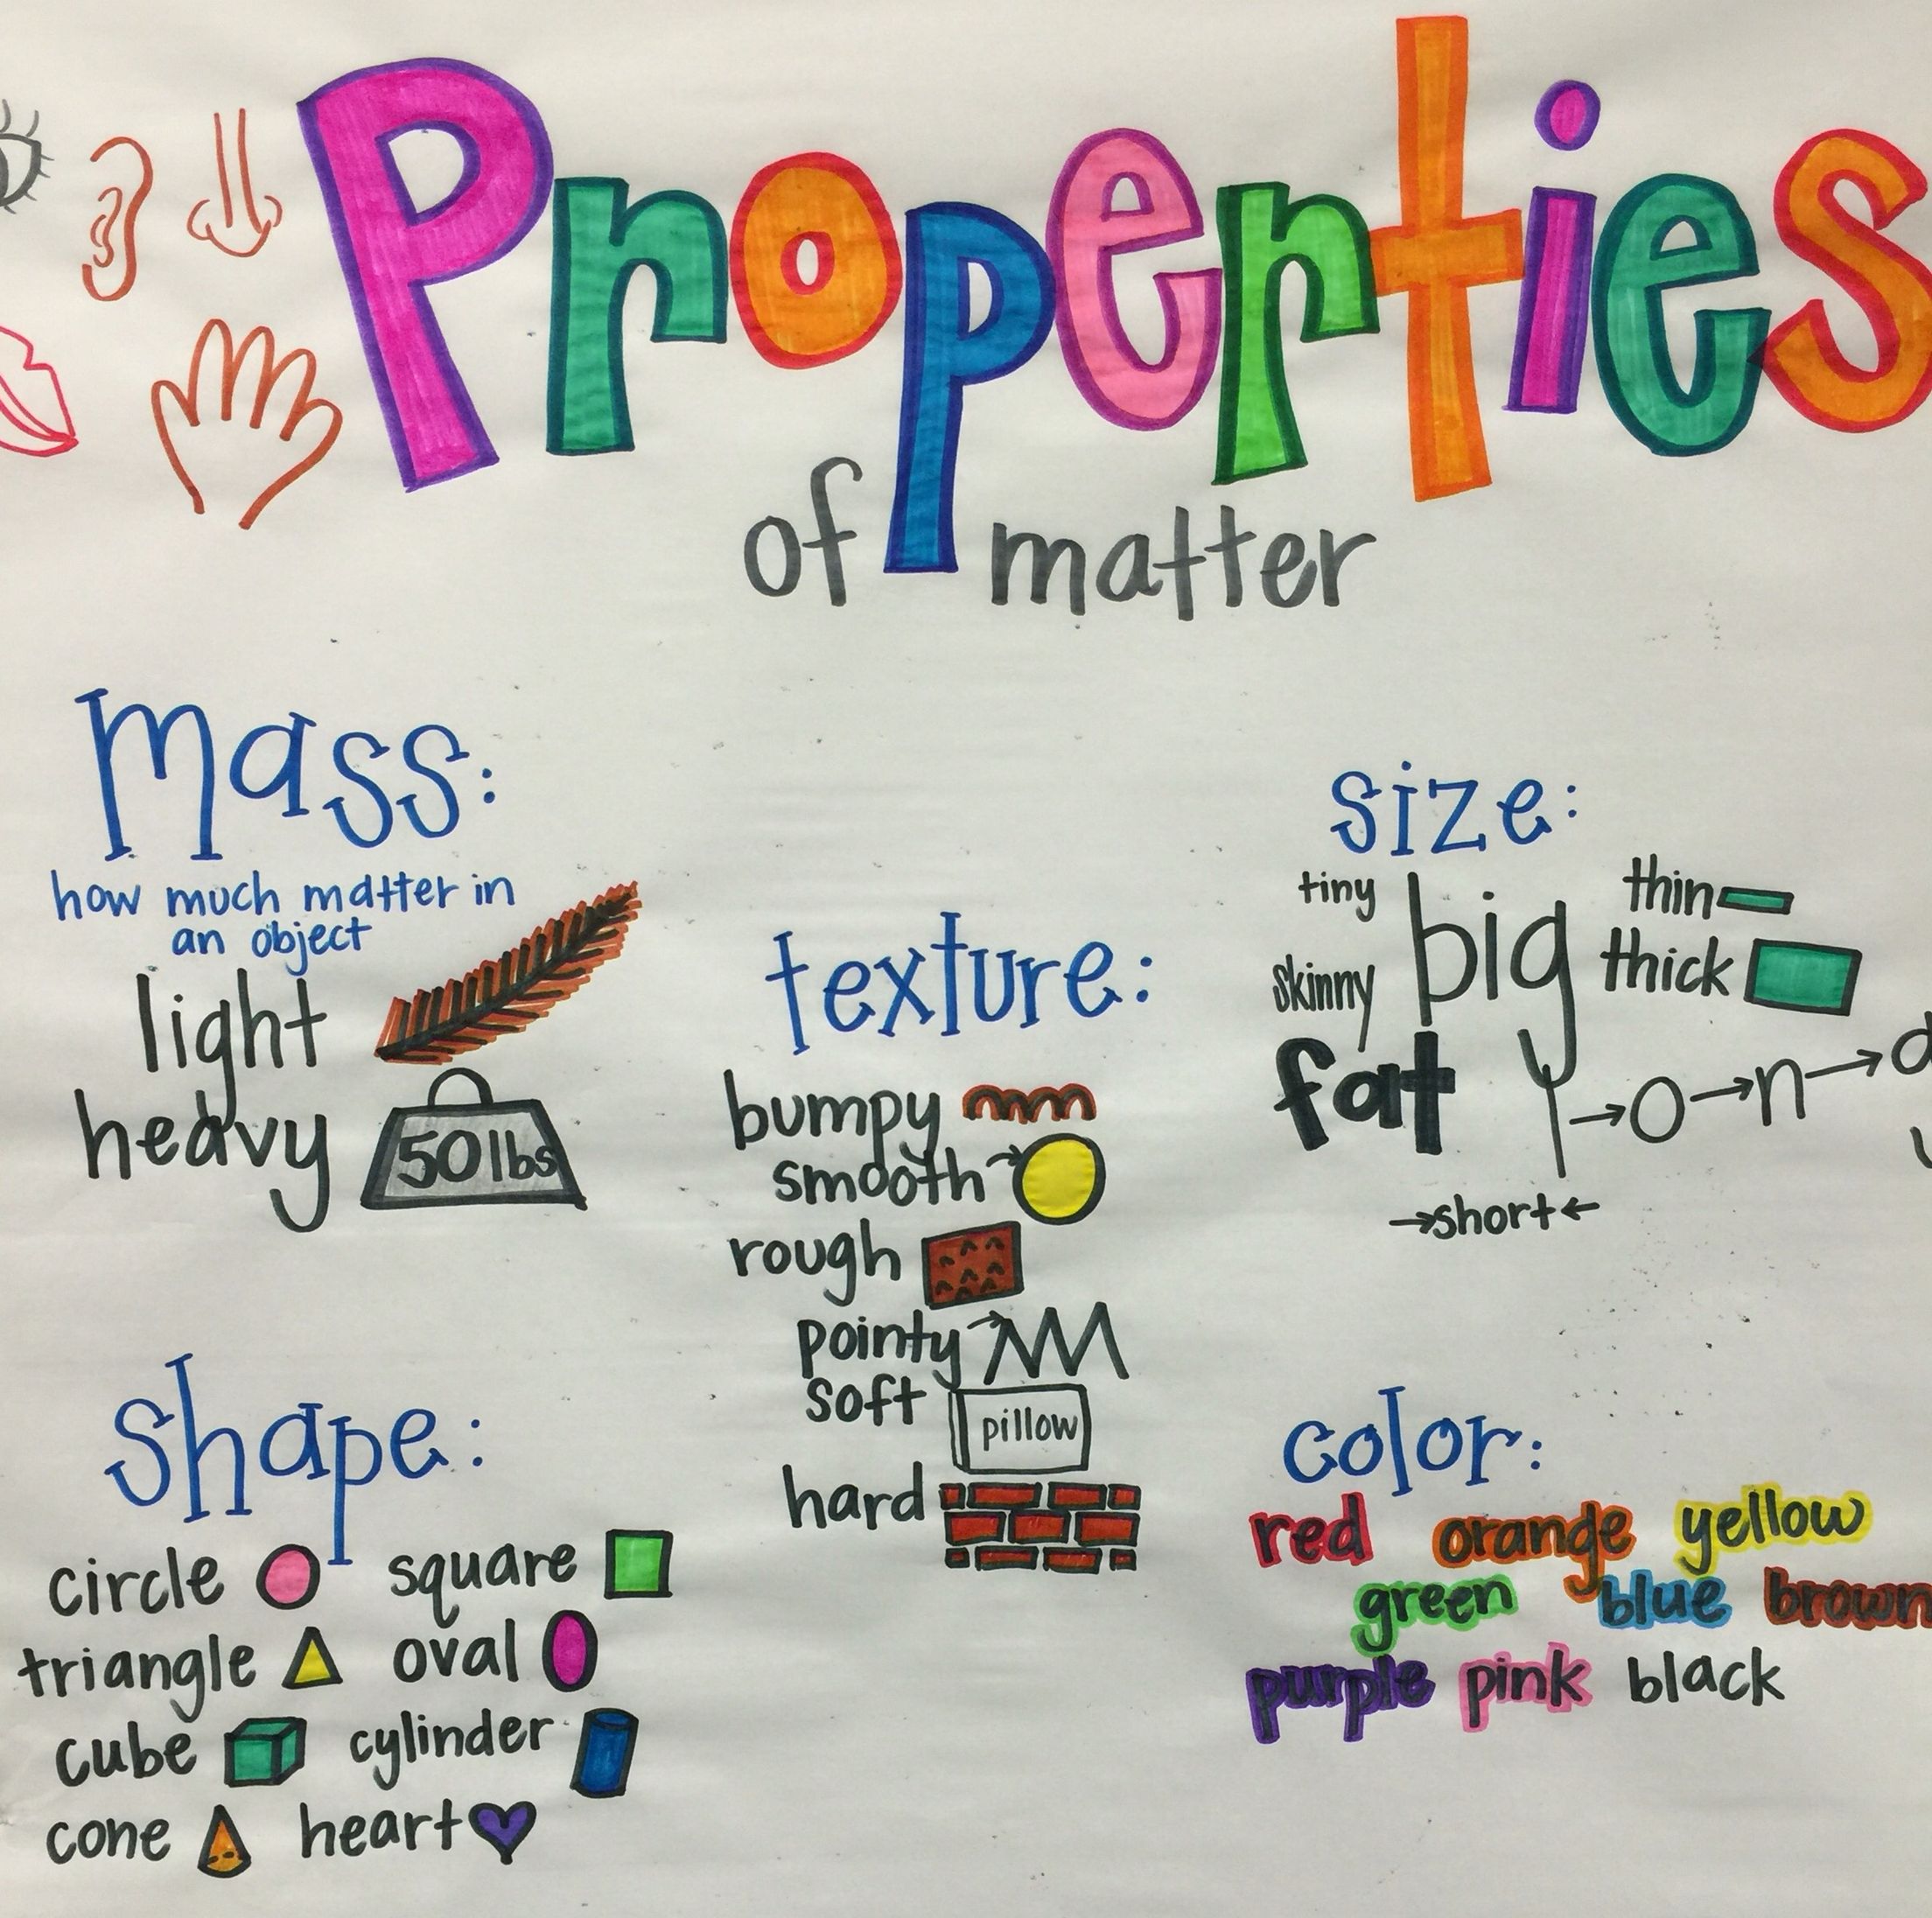 Properties
of matter
mass:
how much matter in
an object
light
heavy
50 lbs
texture:
bumpy
smooth
rough
pointy
soft
pillow
hard
size:
tiny big thin
skinny thick
fat
→short←
shape:
circle square
triangle oval
cube cylinder
cone heart
color:
red orange yellow
green blue brown
purple pink black